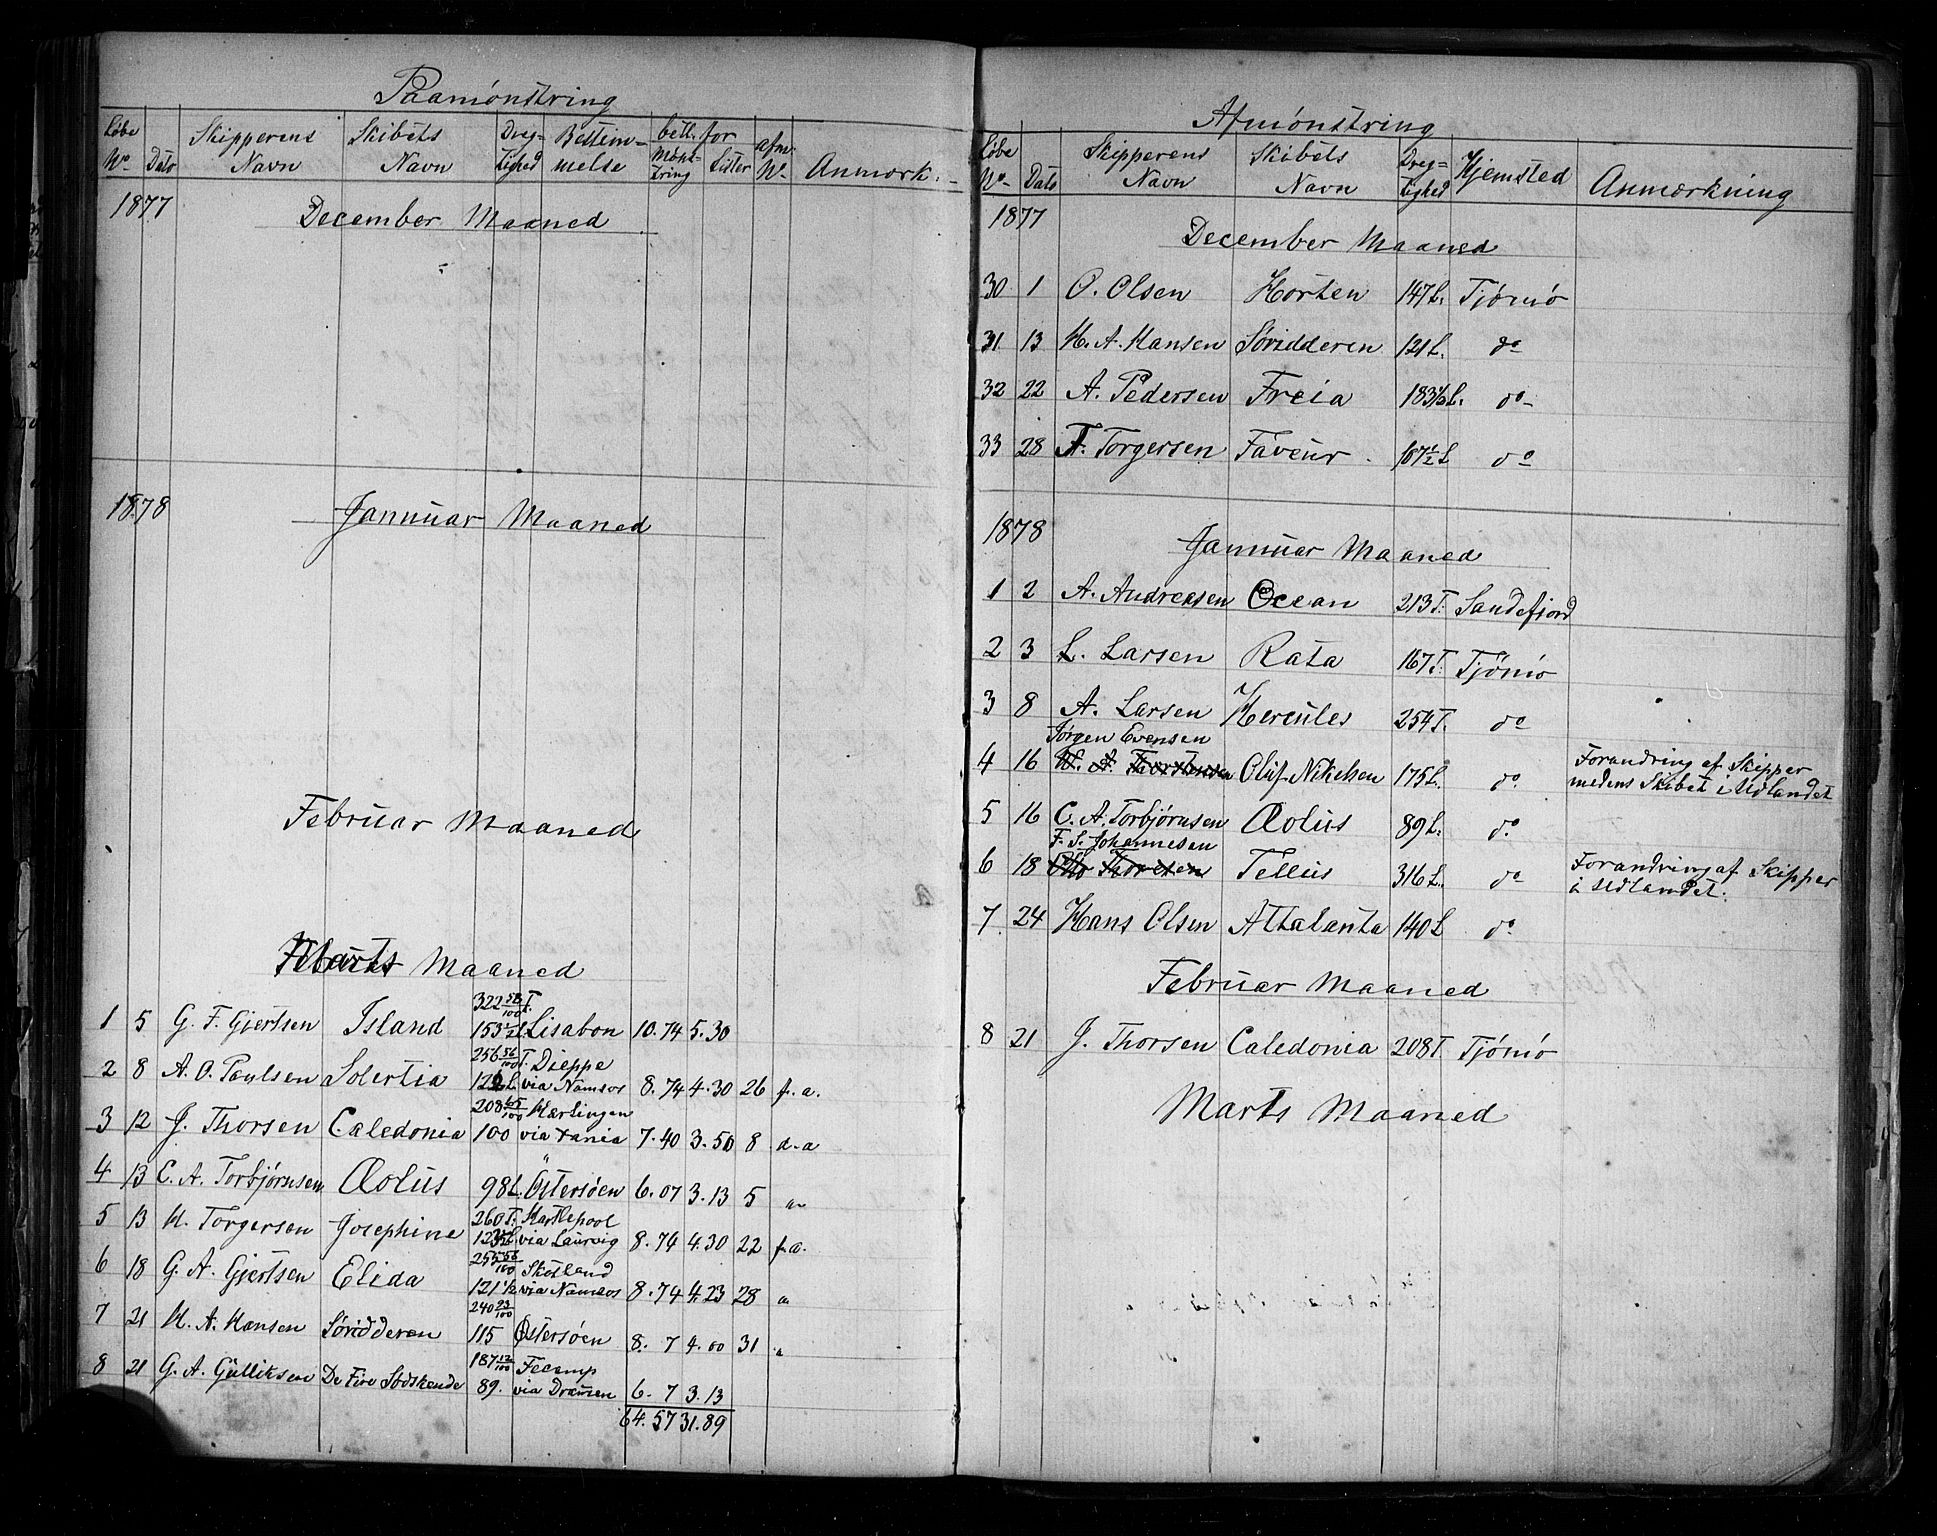 Paamønstring
Løbe No Dato Skipperens Navn Skibets Navn Dræg=tighed Bestem=melse bett. for Mønstring Lister afm. No Anmærk.
1877 December Maaned
1878 Januar Maaned
Februar Maaned
Marts Maaned
322 58/100 T.
1 5 G. F. Gjertsen Island 153 1/2 L Lisabon 10.74 5.30
256 56/100 T. Dieppe
2 8 A. O. Paulsen Solertia L via Namsos 8.74 4.30 26 f. a.
208 65/100 Harlingen
3 12 J. Thorsen Caledonia 100 via 7.40 3.50 8 d. a
4 13 C. A. Torbjørnsen Æolus 98 L. Östersøen 6.07 3.13 5 "
260 T. Hartlepool
5 13 H. Torgersen Josephine via Laurvig 8.74 4.30 22 f. a.
255 56/100 Skotland
6 18 G. A. Gjertsen Elida 121 1/2 via Namsos 8.74 4.23 28 "
240 23/100
7 21 H. A. Hansen Søridderen 115 Østersøen 8. 7 4.00 31 "
187 12/100 Fecamp
8 21 G. A. Gülliksen De Fire Sødskende 89. via Dramen 6. 7 3.13
64.57 31.89
Afmønstring
Løbe No Dato Skipperens Navn Skibets Navn Dræg=tighed Hjemsted Anmærkning
1877
December Maaned
30 1 O. Olsen Horten 147 L. Tjømø
31 13 H. A. Hansen Søridderen 121 L. do
32 22 A. Pedersen Freia 183 1/2 L. do
33 28 F. Torgersen Faveur 107 1/2 L do
1878
Januar Maaned
1 2 A. Andreasen Ocean 213 T. Sandefjord
2 3 L. Larsen Rata 167 T. Tjømø
3 8 A. Larsen Hercules 254 T. do
Jørgen Evensen
4 16 H. A. Thorstensen Oluf Nikelsen 175 L. do Forandring af Skipper
medens Skibet i Udlandet
5 16 C. A. Torbjørnsen Æolus 89 L. do
F. S. Johannesen
6 18 Tellus 316 L. do Forandring af Skipper
i Udlandet.
7 24 Hans Olsen Attalanta 140 L do
Februar Maaned
8 21 J. Thorsen Caledonia 208 T Tjømø
Marts Maaned